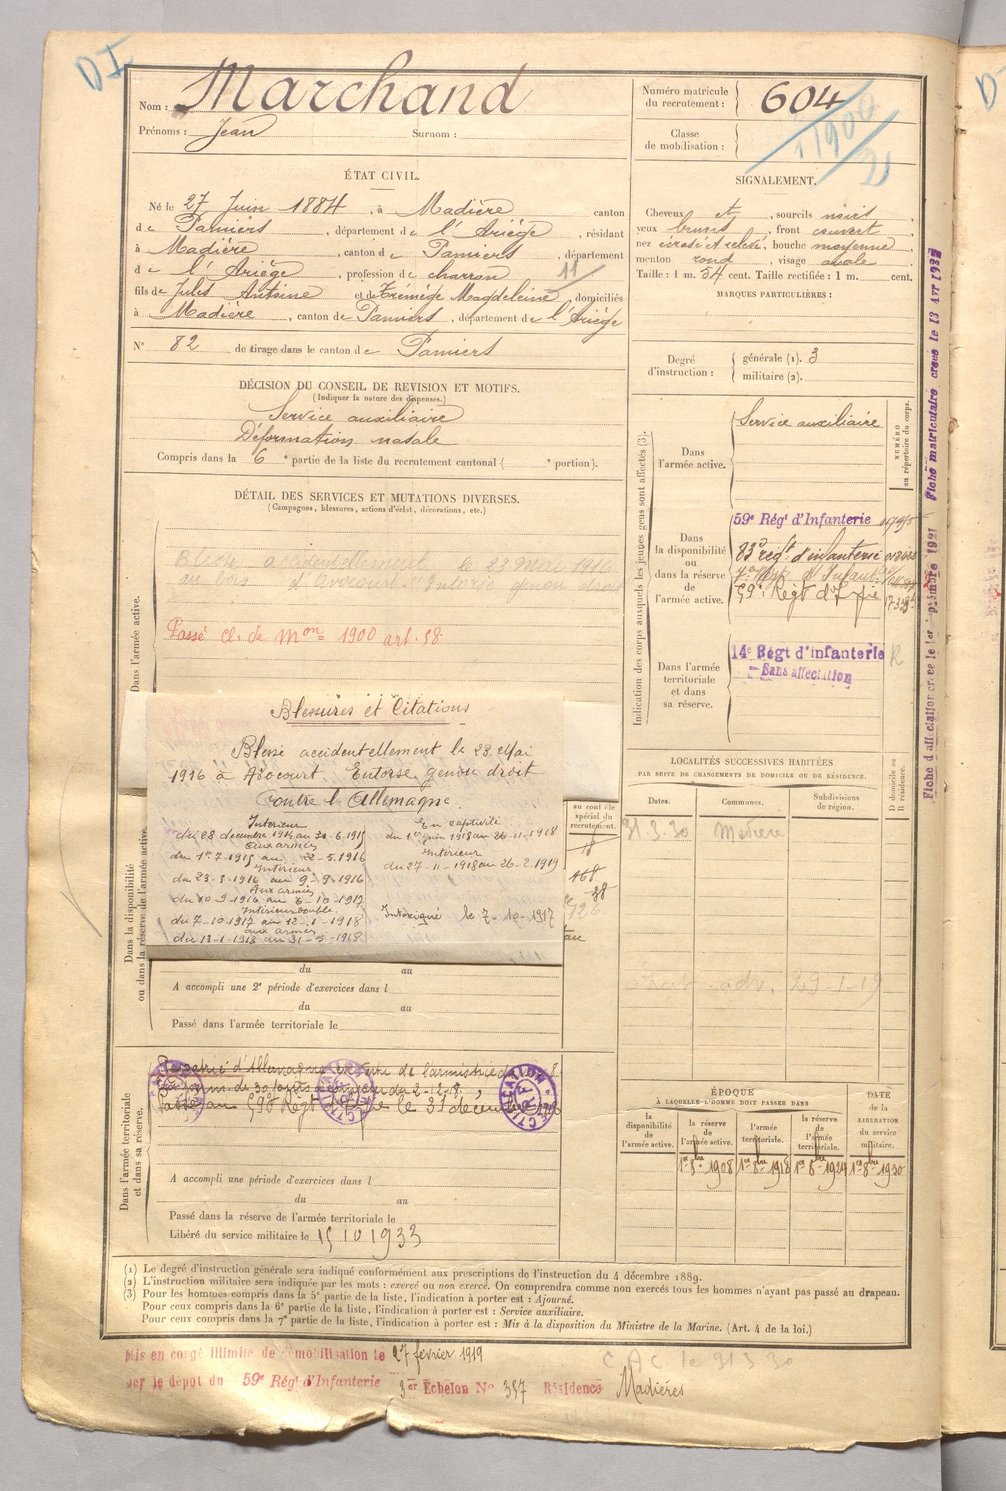 DI
Nom : Marchand
Prénoms : Jean Surnom :
ÉTAT CIVIL.
Né le 27 Juin 1884, à Madière canton
de Pamiers, département de l'Ariège, résidant
à Madière, canton de Pamiers, département
de l'Ariège, profession de charron 11
fils de Jules Antoine et de Trémège Magdeleine, domiciliés
à Madière, canton de Pamiers, département de l'Ariège
N° 82 de tirage dans le canton de Pamiers
DÉCISION DU CONSEIL DE REVISION ET MOTIFS.
(Indiquer la nature des dispenses.)
Service auxiliaire
Déformation nasale
Compris dans la 6e partie de la liste du recrutement cantonal ( e portion).
DÉTAIL DES SERVICES ET MUTATIONS DIVERSES.
(Campagnes, blessures, actions d'éclat, décorations, etc.)
Dans l'armée active.
Blessé accidentellement le 23 Mai 1916
au bois d'Avocourt Entorse genou droit
Passé cl. de mon 1900 art. 58
Blessures et Citations
Blessé accidentellement le 23 Mai
1916 à Avocourt Entorse genou droit
Contre l'Allemagne.
Intérieur
du 28 décembre 1914 au 30-6-1915
Aux armées
du 1er-7-1915 au 22-5-1916
Intérieur
du 23-5-1916 au 9-9-1916
Aux armées
du 10-9-1916 au 6-10-1917
Intérieur double
du 7-10-1917 au 12-1-1918
aux armées
du 13-1-1918 au 31-5-1918
En captivité
du 1er juin 1918 au 26-11-1918
Intérieur
du 27-11-1918 au 26-2-1919
Intoxiqué le 7-10-1917
Dans la disponibilité
ou dans la réserve de l'armée active.
au contrôle
spécial du
recrutement.
468
726
du au
A accompli une 2e période d'exercices dans l
du au
Passé dans l'armée territoriale le
Dans l'armée territoriale
et dans sa réserve.
Rapatrié d'Allemagne
de 30 jours à du 2-12-18
Passé au 59e Régt le 31 décembre
RECTIFICATION
R F
A accompli une période d'exercices dans l
du au
Passé dans la réserve de l'armée territoriale le
Libéré du service militaire le 15 10 1933
Numéro matricule
du recrutement : 604
Classe
de mobilisation : 1900
SIGNALEMENT.
Cheveux et, sourcils noirs,
yeux bruns, front couvert,
nez écrasé et relevé, bouche moyenne,
menton rond, visage ovale
Taille : 1 m. 54 cent. Taille rectifiée : 1 m. cent.
MARQUES PARTICULIÈRES :
Degré
d'instruction :
générale (1). 3
militaire (2).
Indication des corps auxquels les jeunes gens sont affectés (3).
NUMÉRO
au répertoire du corps.
Dans
l'armée active.
Service auxiliaire
Dans
la disponibilité
ou dans la réserve
de l'armée active.
59e Régt d'Infanterie
83e régt d'infanterie
59e Régt d'Infrie
Dans l'armée
territoriale
et dans
sa réserve.
14e Régt d'infanterie R
Sans affectation
LOCALITÉS SUCCESSIVES HABITÉES
PAR SUITE DE CHANGEMENTS DE DOMICILE OU DE RÉSIDENCE.
D domicile ou
R résidence.
Dates. Communes. Subdivisions
de région.
31.3.30 Madière
29-1-19
ÉPOQUE
À LAQUELLE L'HOMME DOIT PASSER DANS
DATE
de la
LIBÉRATION
du service
militaire.
la
disponibilité
de
l'armée active.
la réserve
de
l'armée active.
l'armée
territoriale.
la réserve
de
l'armée
territoriale.
1er 8bre 1908 1er 8bre 1918 1er 8bre 1924 1er 8bre 1930
(1) Le degré d'instruction générale sera indiqué conformément aux prescriptions de l'instruction du 4 décembre 1889.
(2) L'instruction militaire sera indiquée par les mots : exercé ou non exercé. On comprendra comme non exercés tous les hommes n'ayant pas passé au drapeau.
(3) Pour les hommes compris dans la 5e partie de la liste, l'indication à porter est : Ajourné.
Pour ceux compris dans la 6e partie de la liste, l'indication à porter est : Service auxiliaire.
Pour ceux compris dans la 7e partie de la liste, l'indication à porter est : Mis à la disposition du Ministre de la Marine. (Art. 4 de la loi.)
Mis en congé illimité de démobilisation le 27 février 1919
par le dépôt du 59e Régt d'Infanterie 3er Echelon No 357 Résidence Madières
CAC le 31 3 30
Fiche d'affectation créée le 1er 1921 Fiche matriculaire créée le 13 AVR 1932